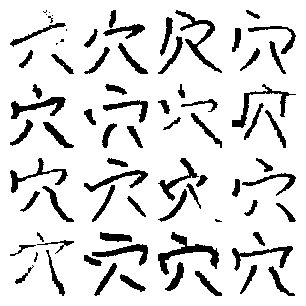 穴穴穴穴
穴穴穴穴
穴穴穴穴
穴穴穴穴